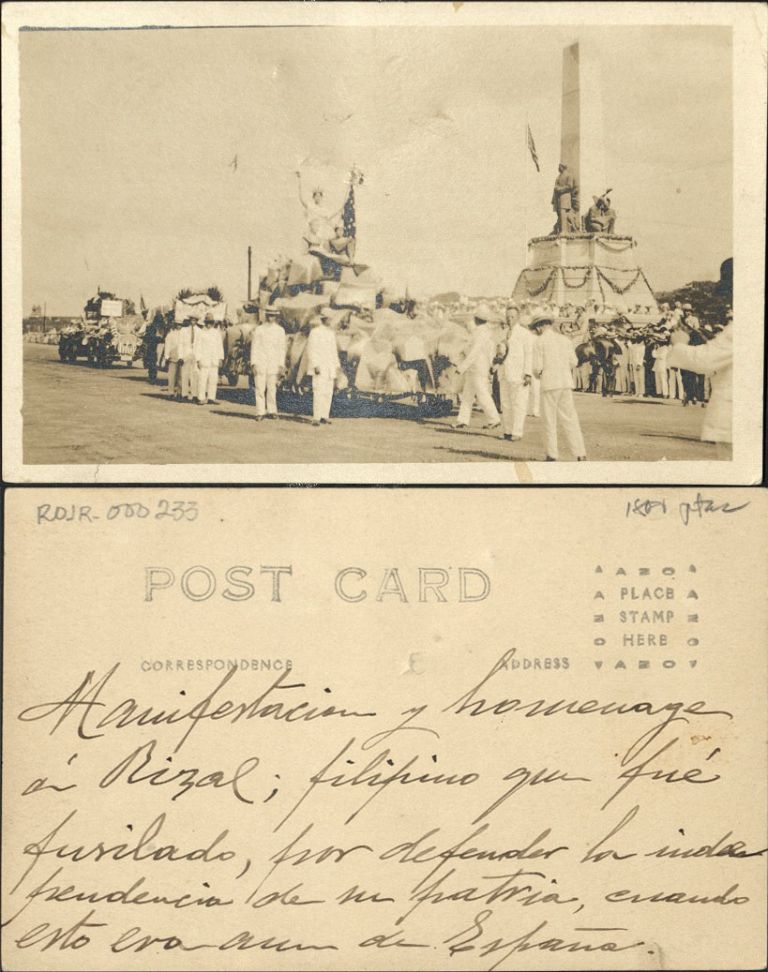 RDJR-000233
POST CARD
AZO
PLACE
STAMP
HERE
AZO
CORRESPONDENCE
ADDRESS
Manifestacion y homenage
á Rizal; filipino que fué
fusilado, por defender la inde
pendencia de su patria, cuando
esto era aun de España.